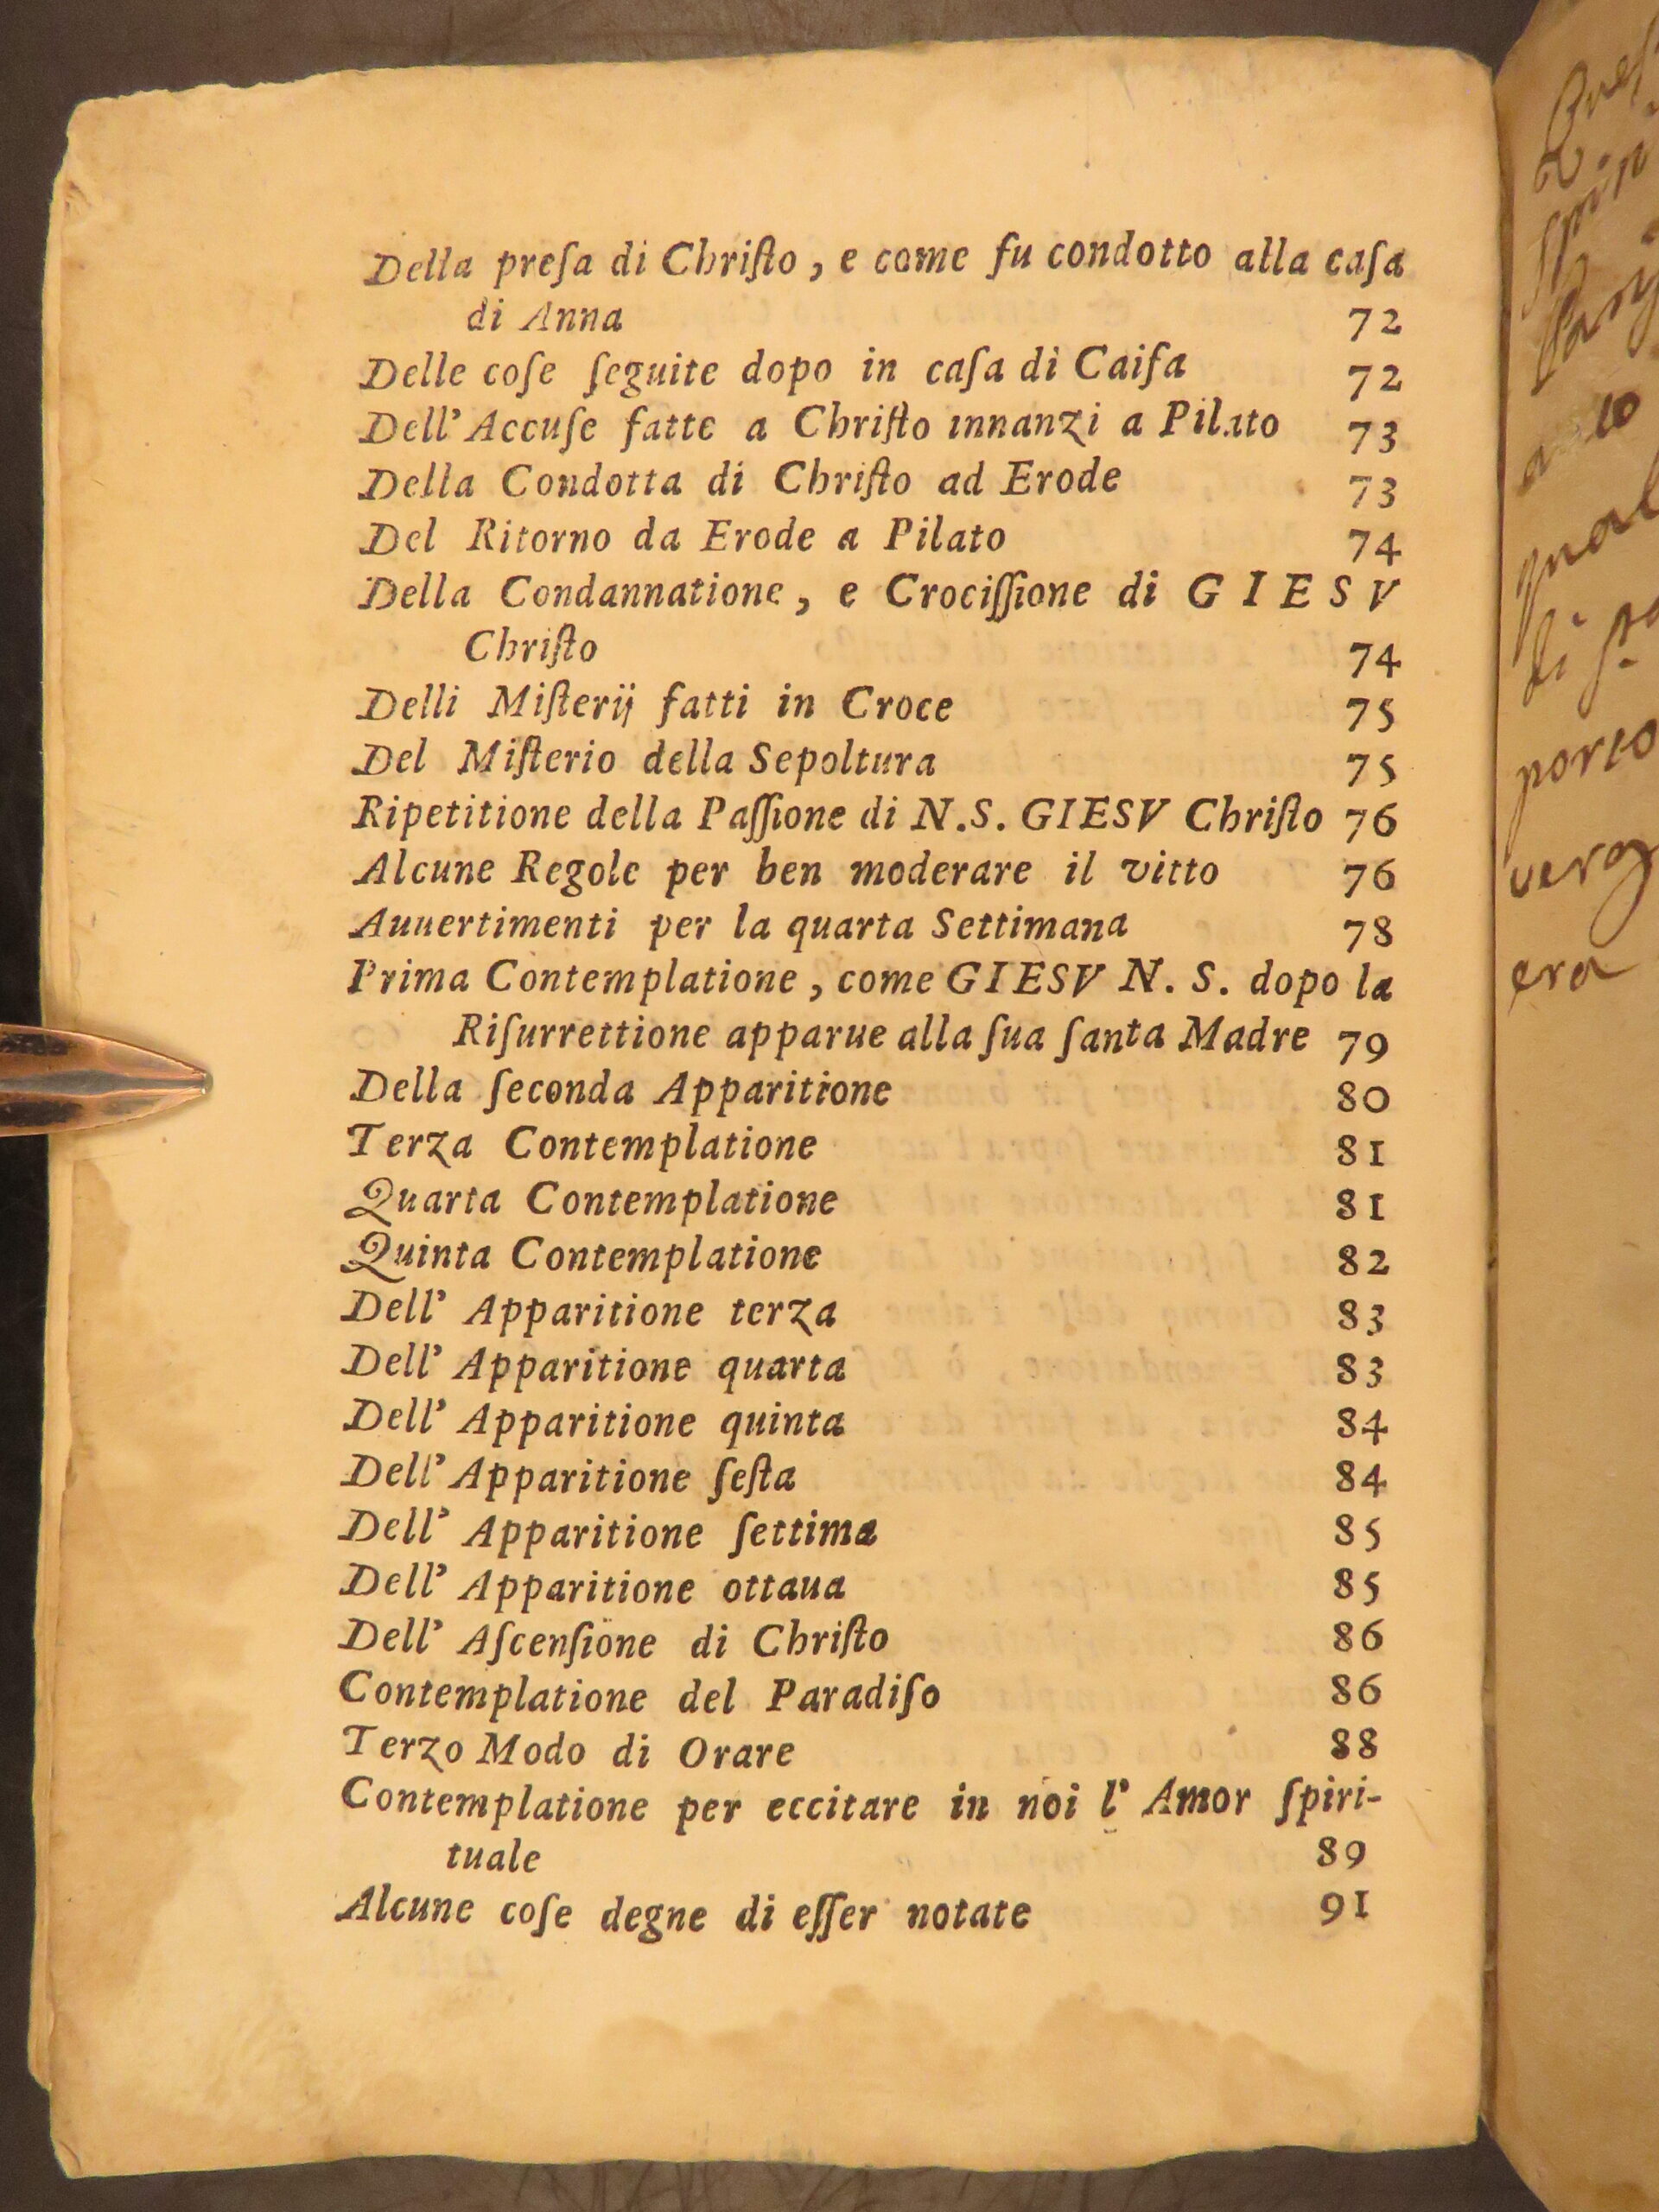 Della preſa di Chriſto, e come fu condotto alla caſa
di Anna 72
Delle coſe ſeguite dopo in caſa di Caifa 72
Dell' Accuſe fatte a Chriſto innanzi a Pilato 73
Della Condotta di Chriſto ad Erode 73
Del Ritorno da Erode a Pilato 74
Della Condannatione, e Crociſſione di GIESV
Chriſto 74
Delli Miſterij fatti in Croce 75
Del Miſterio della Sepoltura 75
Ripetitione della Paſſione di N.S. GIESV Chriſto 76
Alcune Regole per ben moderare il vitto 76
Auuertimenti per la quarta Settimana 78
Prima Contemplatione, come GIESV N. S. dopo la
Riſurrettione apparue alla ſua ſanta Madre 79
Della ſeconda Apparitione 80
Terza Contemplatione 81
Quarta Contemplatione 81
Quinta Contemplatione 82
Dell' Apparitione terza 83
Dell' Apparitione quarta 83
Dell' Apparitione quinta 84
Dell' Apparitione ſeſta 84
Dell' Apparitione ſettima 85
Dell' Apparitione ottaua 85
Dell' Aſcenſione di Chriſto 86
Contemplatione del Paradiſo 86
Terzo Modo di Orare 88
Contemplatione per eccitare in noi l' Amor ſpiri-
tuale 89
Alcune coſe degne di eſſer notate 91
di
porto
era